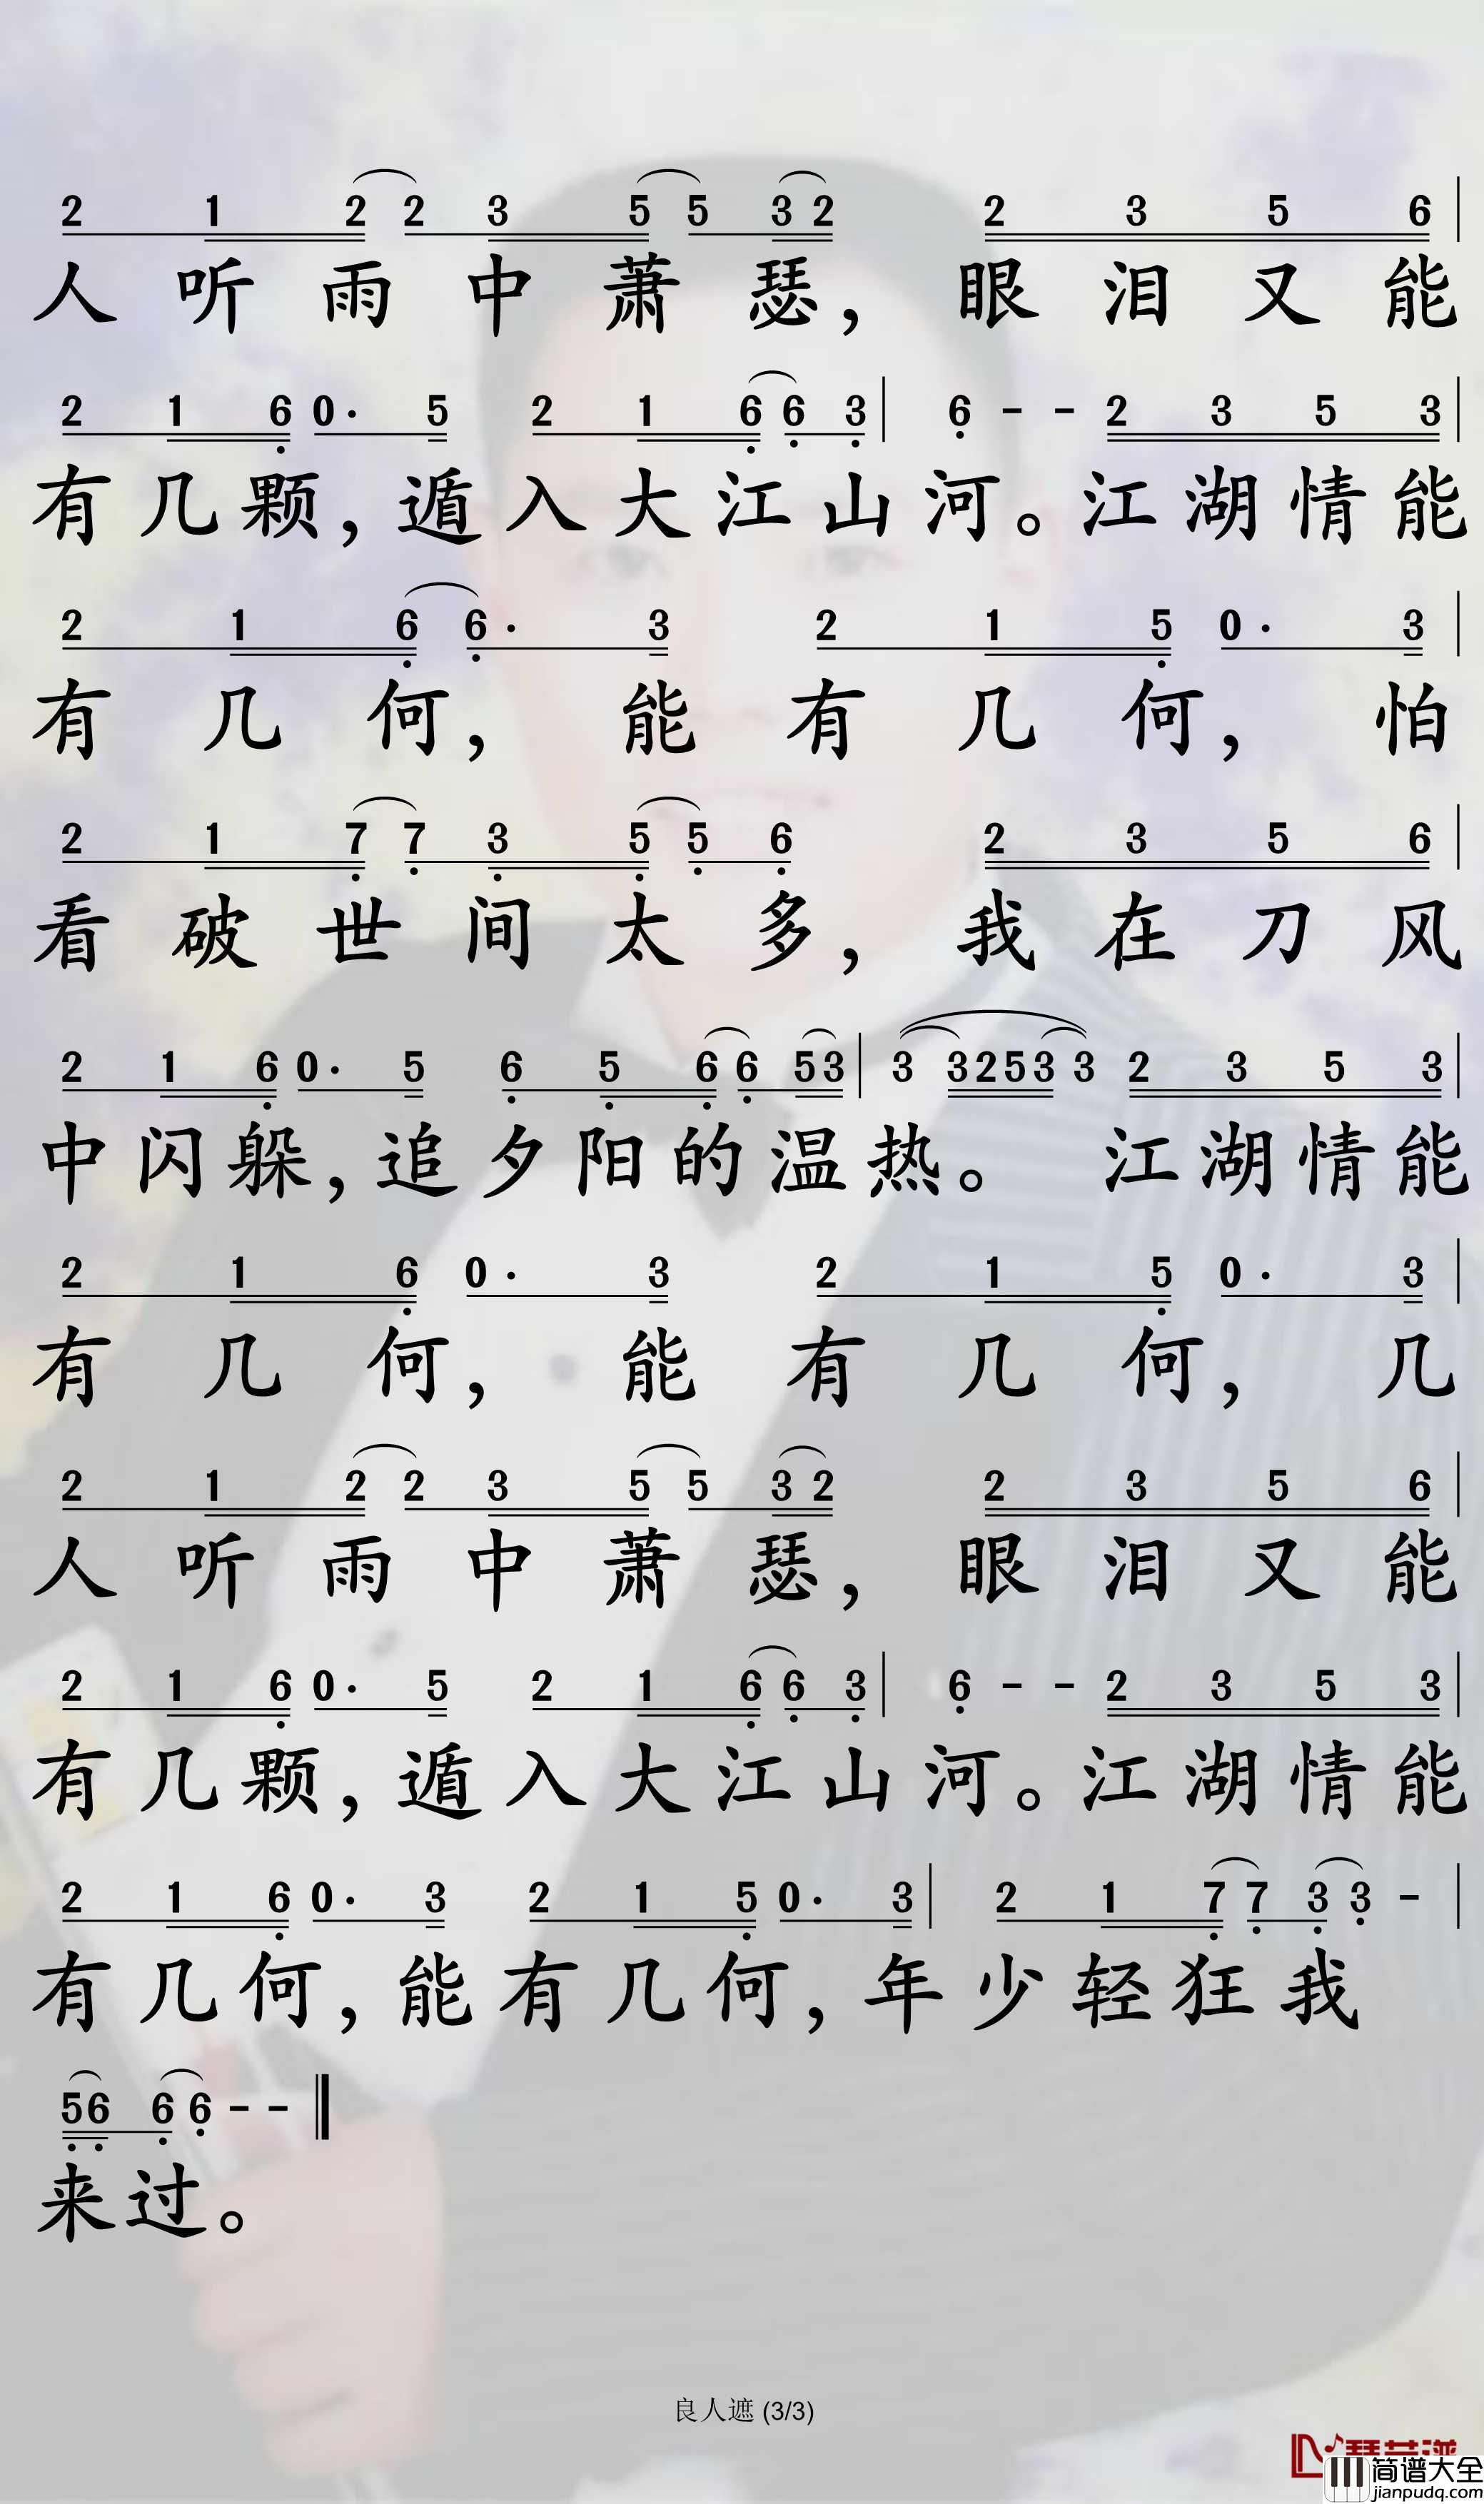 2 1 2 2 3 5 5 3 2 2 3 5 6 |
人听雨中萧瑟，眼泪又能
2 1 6 0· 5 2 1 6 6 3 | 6 - - 2 3 5 3 |
有几颗，遁入大江山河。江湖情能
2 1 6 6· 3 2 1 5 0· 3 |
有几何，能有几何，怕
2 1 7 7 3 5 5 6 2 3 5 6 |
看破世间太多，我在刀风
2 1 6 0· 5 6 5 6 6 5 3 | 3 3 2 5 3 3 2 3 5 3 |
中闪躲，追夕阳的温热。江湖情能
2 1 6 0· 3 2 1 5 0· 3 |
有几何，能有几何，几
2 1 2 2 3 5 5 3 2 2 3 5 6 |
人听雨中萧瑟，眼泪又能
2 1 6 0· 5 2 1 6 6 3 | 6 - - 2 3 5 3 |
有几颗，遁入大江山河。江湖情能
2 1 6 0· 3 2 1 5 0· 3 | 2 1 7 7 3 3 - |
有几何，能有几何，年少轻狂我
5 6 6 6 - - ‖
来过。
良人遮 (3/3)
简谱大全
jianpudq.com